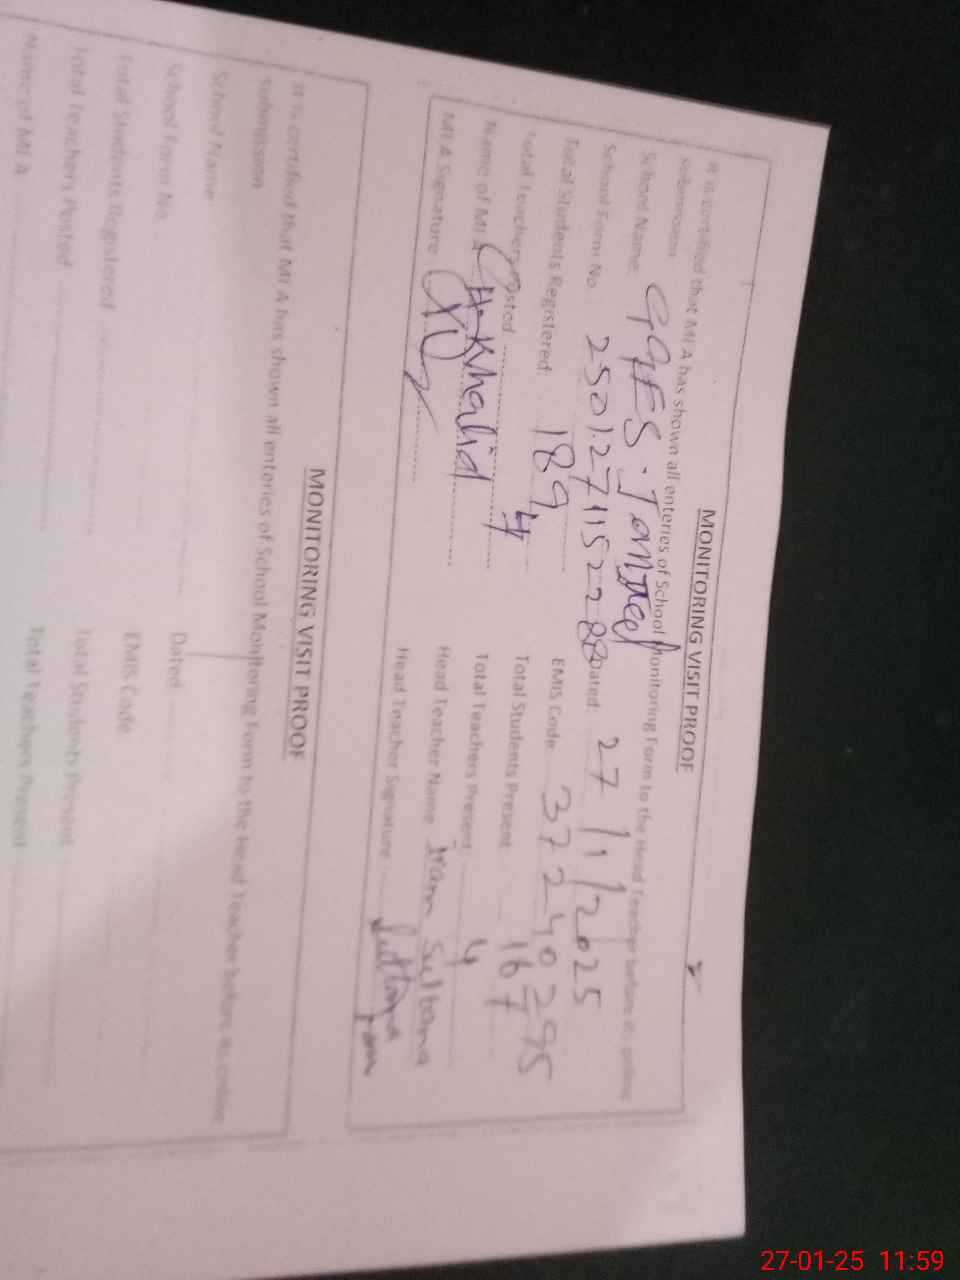 MONITORING VISIT PROOF
It is certified that MEA has shown all enteries of School Monitoring Form to the Head Teacher before its online
submission
School Name:
School Form No. Dated 27/1/2025
Total Students Registered: 189 EMIS Code 37240295
Total Teachers Posted 4 Total Students Present 167
Name of MEA CH. Khalid Total Teachers Present 4
MEA Signature Head Teacher Name Iram Sultana
Head Teacher Signature
MONITORING VISIT PROOF
It is certified that MEA has shown all enteries of School Monitoring Form to the Head Teacher before its online
submission
School Name
School Form No. Dated
Total Students Registered EMIS Code
Total Teachers Posted Total Students Present
Name of MEA Total Teachers Present
27-01-25 11:59